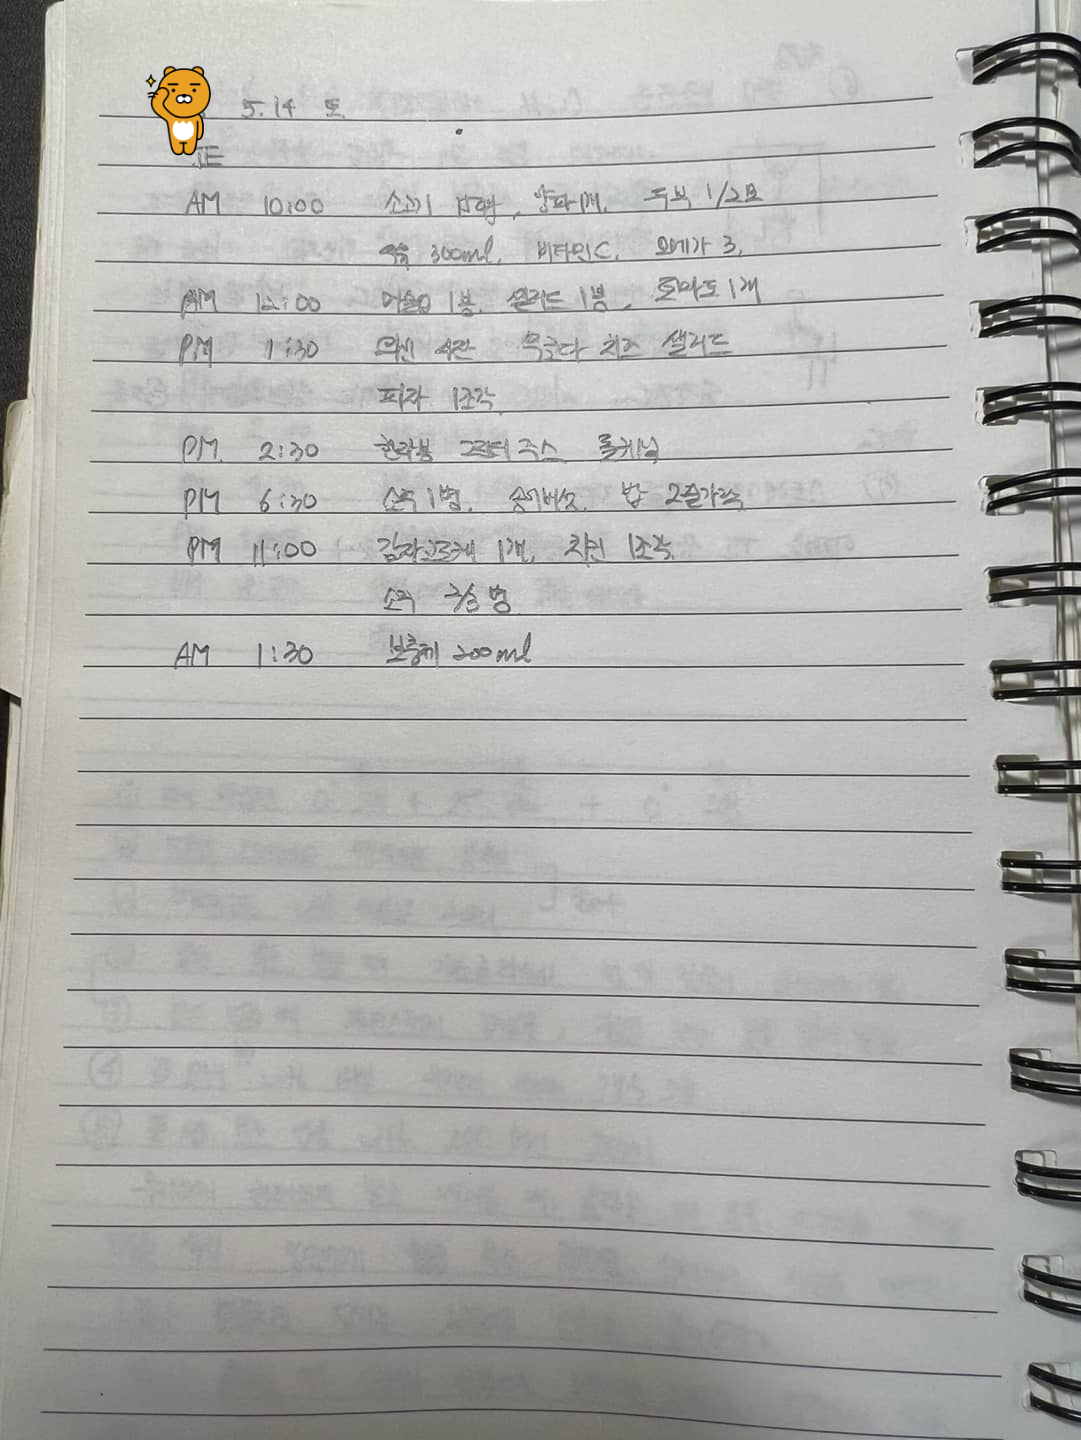 5.14 토
AM 10:00 소고기 양파 1개, 두부 1/2모
300ml, 비타민C, 오메가 3,
AM 12:00 1봉, 샐러드 1봉, 토마토 1개
PM 1:30 와인 4잔 부라타 치즈 샐러드
피자 1조각
PM 2:30 한라봉 주스
PM 6:30 소주 1병, 송이버섯, 밥 2숟가락
PM 11:00 감자고로케 1개, 치킨 1조각
소주 2/3 병
AM 1:30 보충제 200ml